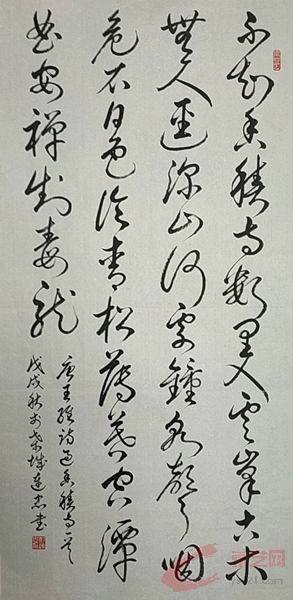 不知香積寺數里入雲峯古木
無人逕深山何處鐘泉聲咽
危石日色冷青松薄暮空潭
曲安禪制毒龍
唐王維詩過香積寺一首
戊戌秋於城忠書